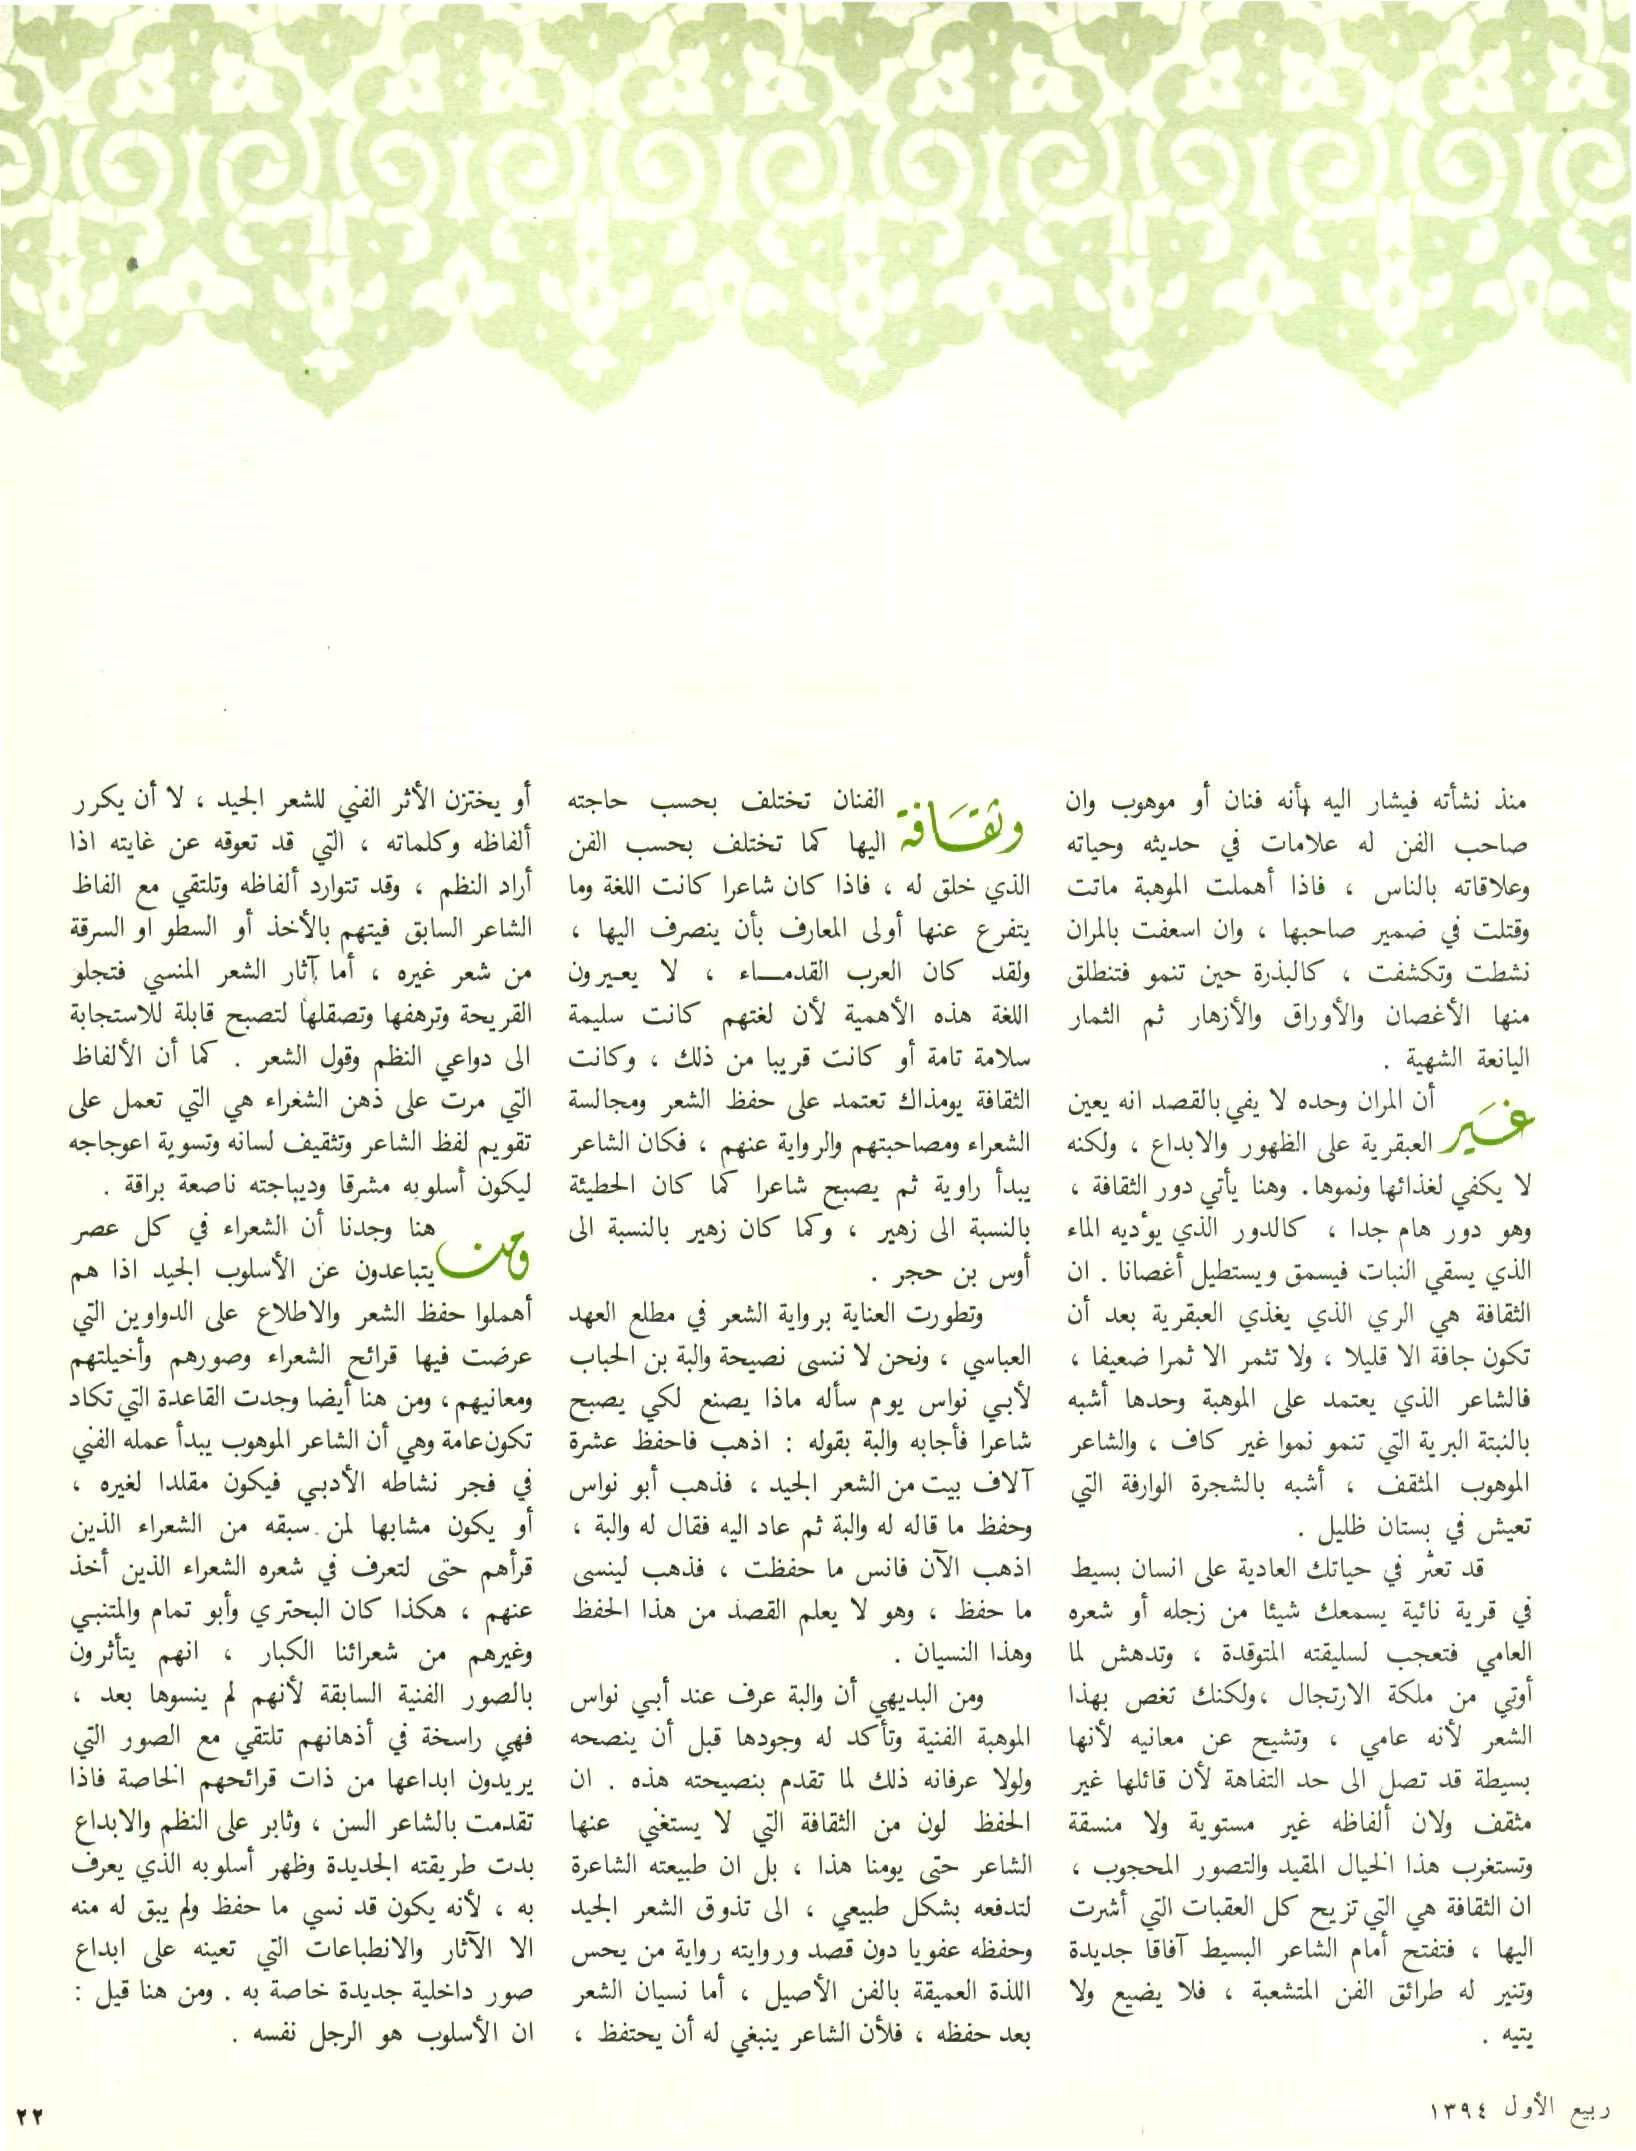 منذ نشأته فيشار اليه بأنه فنان أو موهوب وان
صاحب الفن له علامات في حديثه وحياته
وعلاقاته بالناس ، فاذا أهملت الموهبة ماتت
وقتلت في ضمير صاحبها ، وان اسعفت بالمران
نشطت وتكشفت ، كالبذرة حين تنمو فتنطلق
منها الأغصان والأوراق والأزهار ثم الثمار
اليانعة الشهية .
غير أن المران وحده لا يفي بالقصد انه يعين
العبقرية على الظهور والابداع ، ولكنه
لا يكفي لغذائها ونموها. وهنا يأتي دور الثقافة ،
وهو دور هام جدا ، كالدور الذي يؤديه الماء
الذي يسقي النبات فيسمق ويستطيل أغصانا . ان
الثقافة هي الري الذي يغذي العبقرية بعد أن
تكون جافة الا قليلا ، ولا تثمر الا ثمرا ضعيفا ،
فالشاعر الذي يعتمد على الموهبة وحدها أشبه
بالنبتة البرية التي تنمو نموا غير كاف ، والشاعر
الموهوب المثقف ، أشبه بالشجرة الوارفة التي
تعيش في بستان ظليل .
قد تعثر في حياتك العادية على انسان بسيط
في قرية نائية يسمعك شيئا من زجله أو شعره
العامي فتعجب لسليقته المتوقدة ، وتدهش لما
أوتي من ملكة الارتجال ،ولكنك تغص بهذا
الشعر لأنه عامي ، وتشيح عن معانيه لأنها
بسيطة قد تصل الى حد التفاهة لأن قائلها غير
مثقف ولان ألفاظه غير مستوية ولا منسقة
وتستغرب هذا الخيال المقيد والتصور المحجوب ،
ان الثقافة هي التي تزيح كل العقبات التي أشرت
اليها ، فتفتح أمام الشاعر البسيط آفاقا جديدة
وتنير له طرائق الفن المتشعبة ، فلا يضيع ولا
يتيه .
وثقافة الفنان تختلف بحسب حاجته
اليها كما تختلف بحسب الفن
الذي خلق له ، فاذا كان شاعرا كانت اللغة وما
يتفرع عنها أولى المعارف بأن ينصرف اليها ،
ولقد كان العرب القدمـــاء ، لا يعيرون
اللغة هذه الأهمية لأن لغتهم كانت سليمة
سلامة تامة أو كانت قريبا من ذلك ، وكانت
الثقافة يومذاك تعتمد على حفظ الشعر ومجالسة
الشعراء ومصاحبتهم والرواية عنهم ، فكان الشاعر
يبدأ راوية ثم يصبح شاعرا كما كان الحطيئة
بالنسبة الى زهير ، وكما كان زهير بالنسبة الى
أوس بن حجر .
وتطورت العناية برواية الشعر في مطلع العهد
العباسي ، ونحن لا ننسى نصيحة والبة بن الحباب
لأبي نواس يوم سأله ماذا يصنع لكي يصبح
شاعرا فأجابه والبة بقوله : اذهب فاحفظ عشرة
آلاف بيت من الشعر الجيد ، فذهب أبو نواس
وحفظ ما قاله له والبة ثم عاد اليه فقال له والبة ،
اذهب الآن فانس ما حفظت ، فذهب لينسى
ما حفظ ، وهو لا يعلم القصد من هذا الحفظ
وهذا النسيان .
ومن البديهي أن والبة عرف عند أبي نواس
الموهبة الفنية وتأكد له وجودها قبل أن ينصحه
ولولا عرفانه ذلك لما تقدم بنصيحته هذه . ان
الحفظ لون من الثقافة التي لا يستغني عنها
الشاعر حتى يومنا هذا ، بل ان طبيعته الشاعرة
لتدفعه بشكل طبيعي ، الى تذوق الشعر الجيد
وحفظه عفويا دون قصد وروايته رواية من يحس
اللذة العميقة بالفن الأصيل ، أما نسيان الشعر
بعد حفظه ، فلأن الشاعر ينبغي له أن يحتفظ ،
أو يختزن الأثر الفني للشعر الجيد ، لا أن يكرر
ألفاظه وكلماته ، التي قد تعوقه عن غايته اذا
أراد النظم ، وقد تتوارد ألفاظه وتلتقي مع الفاظ
الشاعر السابق فيتهم بالأخذ أو السطو او السرقة
من شعر غيره ، أما آثار الشعر المنسي فتجلو
القريحة وترهفها وتصقلها لتصبح قابلة للاستجابة
الى دواعي النظم وقول الشعر . كما أن الألفاظ
التي مرت على ذهن الشغراء هي التي تعمل على
تقويم لفظ الشاعر وتثقيف لسانه وتسوية اعوجاجه
ليكون أسلوبه مشرقا وديباجته ناصعة براقة .
ومن هنا وجدنا أن الشعراء في كل عصر
يتباعدون عن الأسلوب الجيد اذا هم
أهملوا حفظ الشعر والاطلاع على الدواوين التي
عرضت فيها قرائح الشعراء وصورهم وأخيلتهم
ومعانيهم، ومن هنا أيضا وجدت القاعدة التي تكاد
تكون عامة وهي أن الشاعر الموهوب يبدأ عمله الفني
في فجر نشاطه الأدبي فيكون مقلدا لغيره ،
أو يكون مشابها لمن سبقه من الشعراء الذين
قرأهم حتى لتعرف في شعره الشعراء الذين أخذ
عنهم ، هكذا كان البحتري وأبو تمام والمتنبي
وغيرهم من شعرائنا الكبار ، انهم يتأثرون
بالصور الفنية السابقة لأنهم لم ينسوها بعد ،
فهي راسخة في أذهانهم تلتقي مع الصور التي
يريدون ابداعها من ذات قرائحهم الخاصة فاذا
تقدمت بالشاعر السن ، وثابر على النظم والابداع
بدت طريقته الجديدة وظهر أسلوبه الذي يعرف
به ، لأنه يكون قد نسي ما حفظ ولم يبق له منه
الا الآثار والانطباعات التي تعينه على ابداع
صور داخلية جديدة خاصة به . ومن هنا قيل :
ان الأسلوب هو الرجل نفسه .
ربيع الأول ١٣٩٤
٢٢